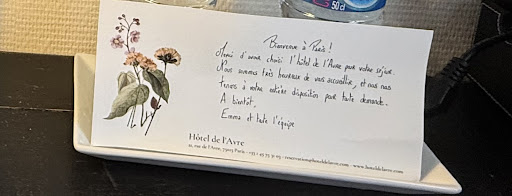 50 cl
Bienvenue à Paris !
Merci d'avoir choisi l'hôtel de l'Avre pour votre séjour.
Nous sommes très heureux de vous accueillir, et nous nous
tenons à votre entière disposition pour toute demande.
A bientôt,
Emma et toute l'équipe
Hôtel de l'Avre
21, rue de l'Avre, 75015 Paris - +33 1 45 75 31 03 - reservation@hoteldelavre.com - www.hoteldelavre.com